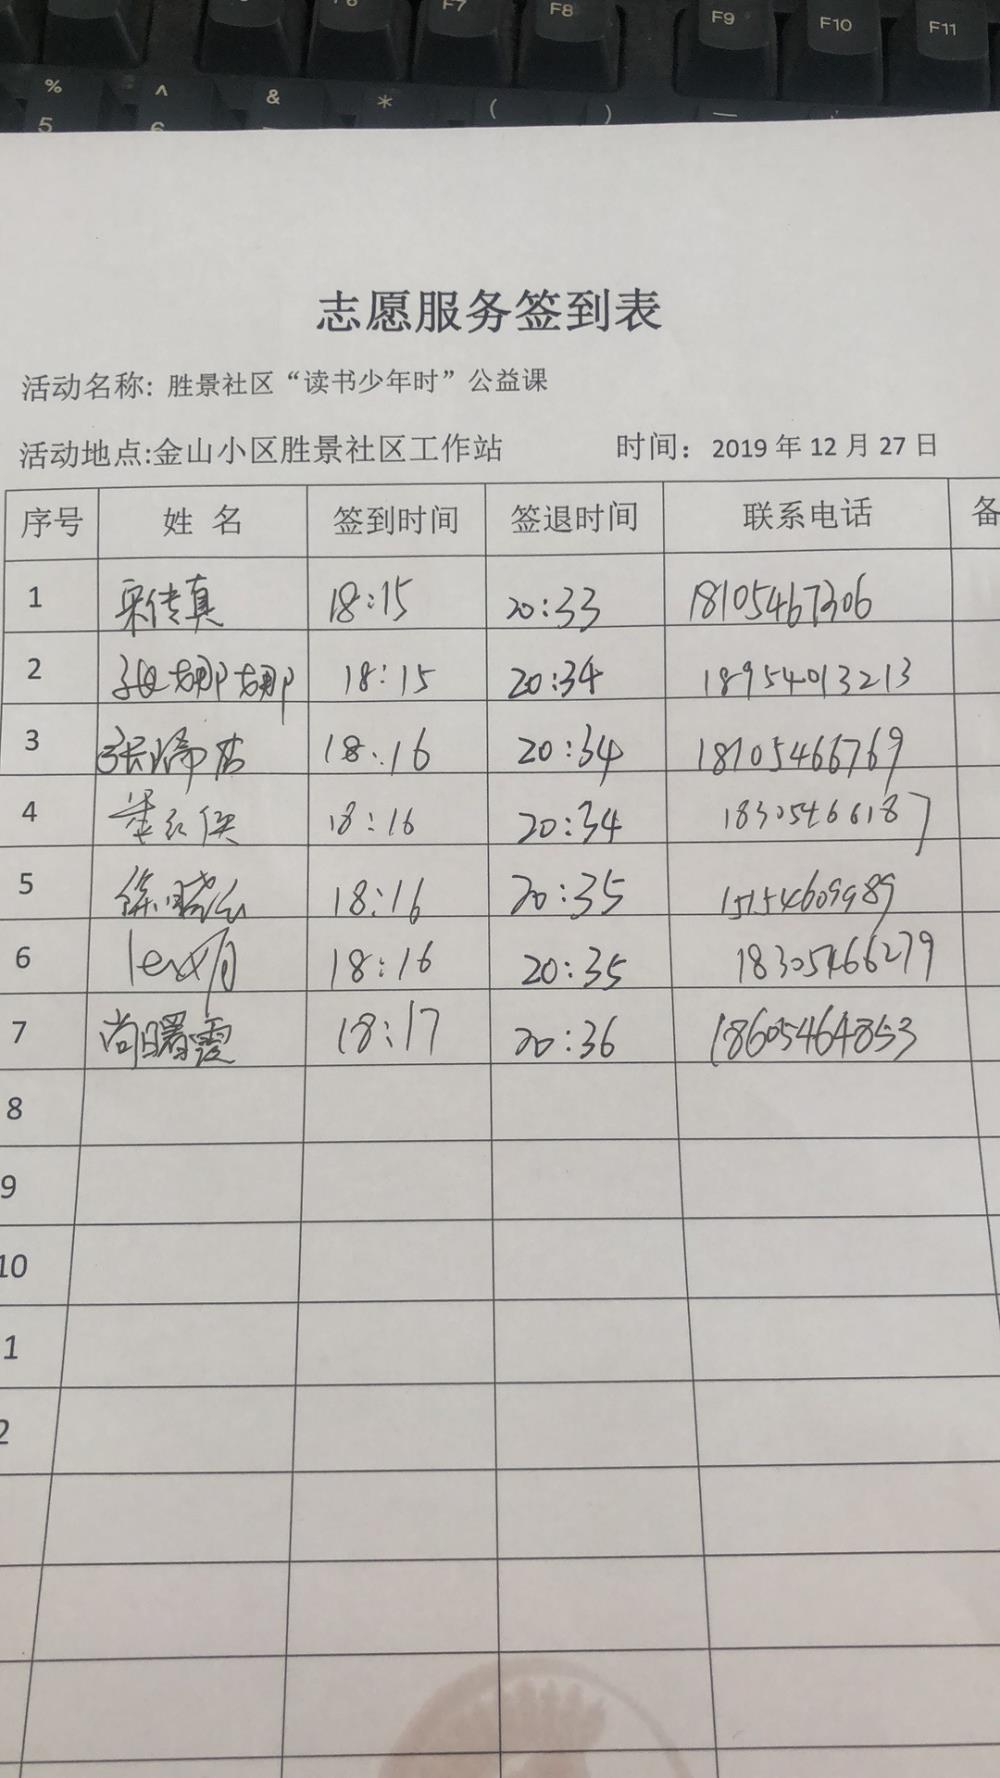 F7 F8 F9 F10 F11
% ^ & * ( )
5 6
志愿服务签到表
活动名称: 胜景社区“读书少年时”公益课
活动地点:金山小区胜景社区工作站 时间: 2019 年 12 月 27 日
序号 姓 名 签到时间 签退时间 联系电话 备
1 宋传真 18:15 20:33 18105467306
2 张娜娜 18:15 20:34 18954013213
3 18:16 20:34 18105466769
4 18:16 20:34 18305466187
5 徐晓云 18:16 20:35 15154609989
6 18:16 20:35 18305466279
7 尚曙霞 18:17 20:36 18605464853
8
9
10
1
2